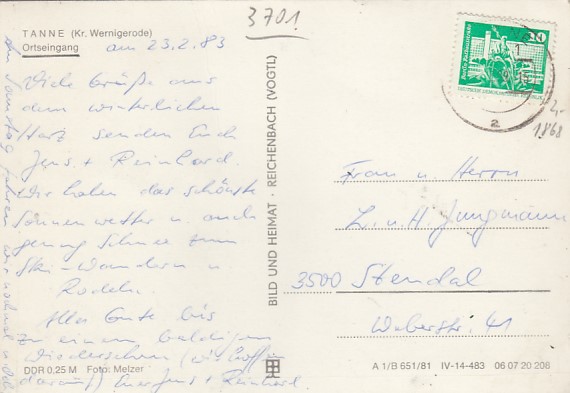 3701
TANNE (Kr. Wernigerode)
Ortseingang
am 23.2.83
Viele Grüße aus
dem winterlichen
Harz senden Euch
Jens + Reinhard.
Wir haben das schönste
Sonnenwetter u. auch
genug Schnee zum
Ski-Wandern u
Rodeln.
Alles Gute bis
zu einem baldigen
Wiedersehen (wir hoffen
darauf) Euer Jens + Reinhard
DDR 0,25 M Foto: Melzer
BILD UND HEIMAT · REICHENBACH (VOGTL)
2,-
1868
Frau u. Herrn
L. u. H. Jungmann
3500 Stendal
Weberstr. 41
A 1/B 651/81 IV-14-483 06 07 20 208